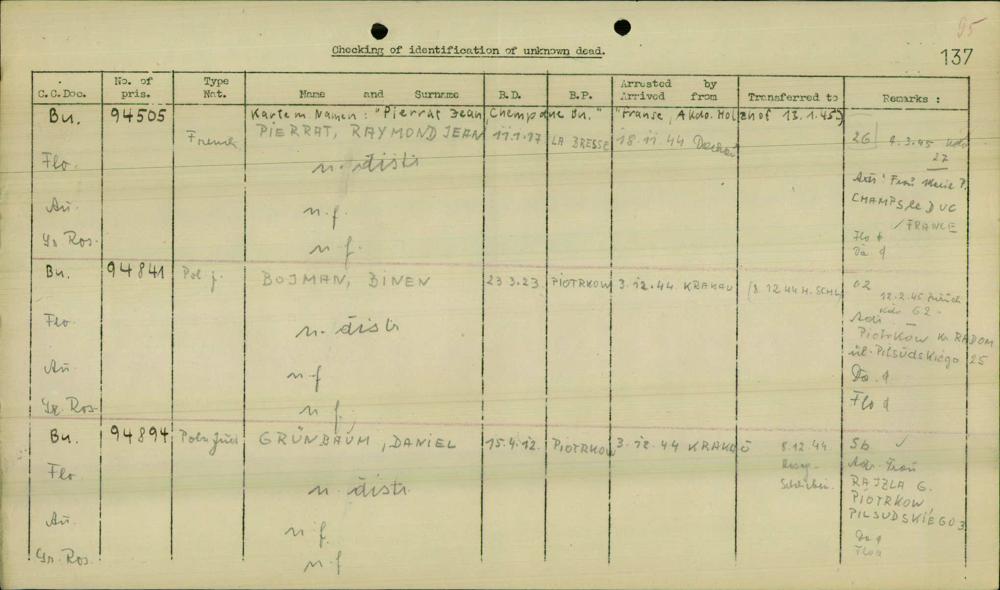 95
137
Checking of identification of unknown dead.
C.C.Doc. No. of pris. Type Nat. Name and Surname B.D. B.P. Arrested by Arrived from Transferred to Remarks :
Bu. 94505 Kartem Namen: "Pierrat Jean, Bu." "Franse, A Kdo. Holzhof 13.1.45)
PIERRAT, RAYMOND JEAN 11.1.17 LA BRESSE 18.11.44 26 4.3.45
27
Flo. n. distr
Adr: Frau Marie P.
CHAMPS le DUC
Au. n.f. / FRANCE
Gr Ros. n.f. Flo
Da
Bu. 94841 Pol j. BOJMAN, BINEN 23 3.23 PIOTRKOW 3.12.44 KRAKAU (8.12.44 H. SCHL) 02
12.2.45 zurück
Kdo 62
Flo. n. distr Adr
PIOTRKOW Kr RADOM
ul. PILSUDSKIEGO 25
Au. n.f Da
Gr Ros. n.f. Flo
Bu. 94894 Poln Jude GRÜNBAUM, DANIEL 15.4.12. PIOTRKOW 3.12.44 KRAKAU 8.12.44 Sb
Flo. n. distr. Adr. Frau
RAJZLA G.
PIOTRKOW
PILSUDSKIEGO 3
Au. n.f. Da
Gr. Ros. n.f Flo